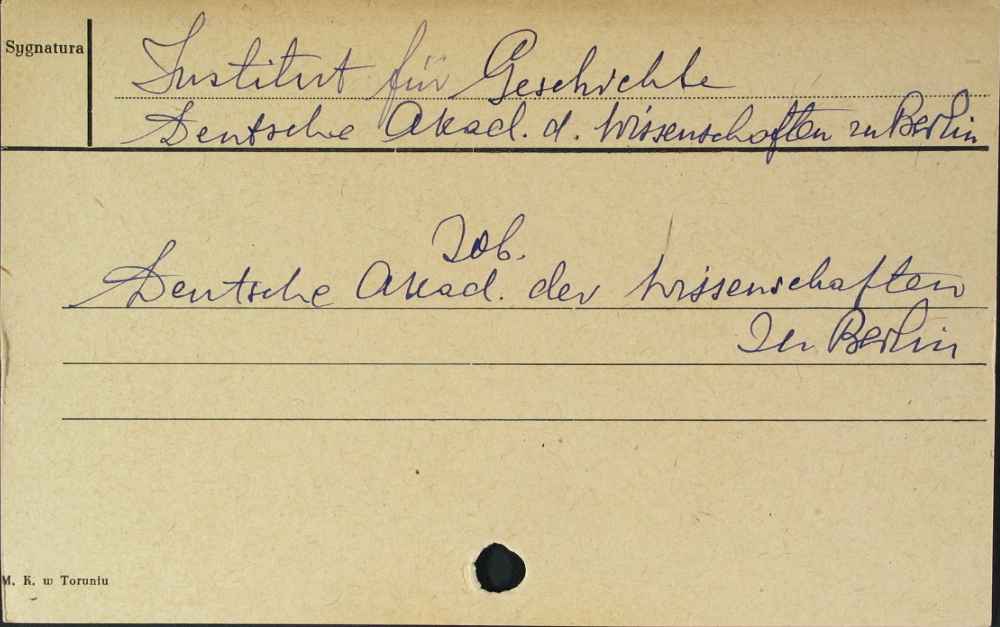 Sygnatura
Institut für Geschichte
Deutsche Akad. d. Wissenschaften zu Berlin
Zob.
Deutsche Akad. der Wissenschaften
zu Berlin
M. K. w Toruniu